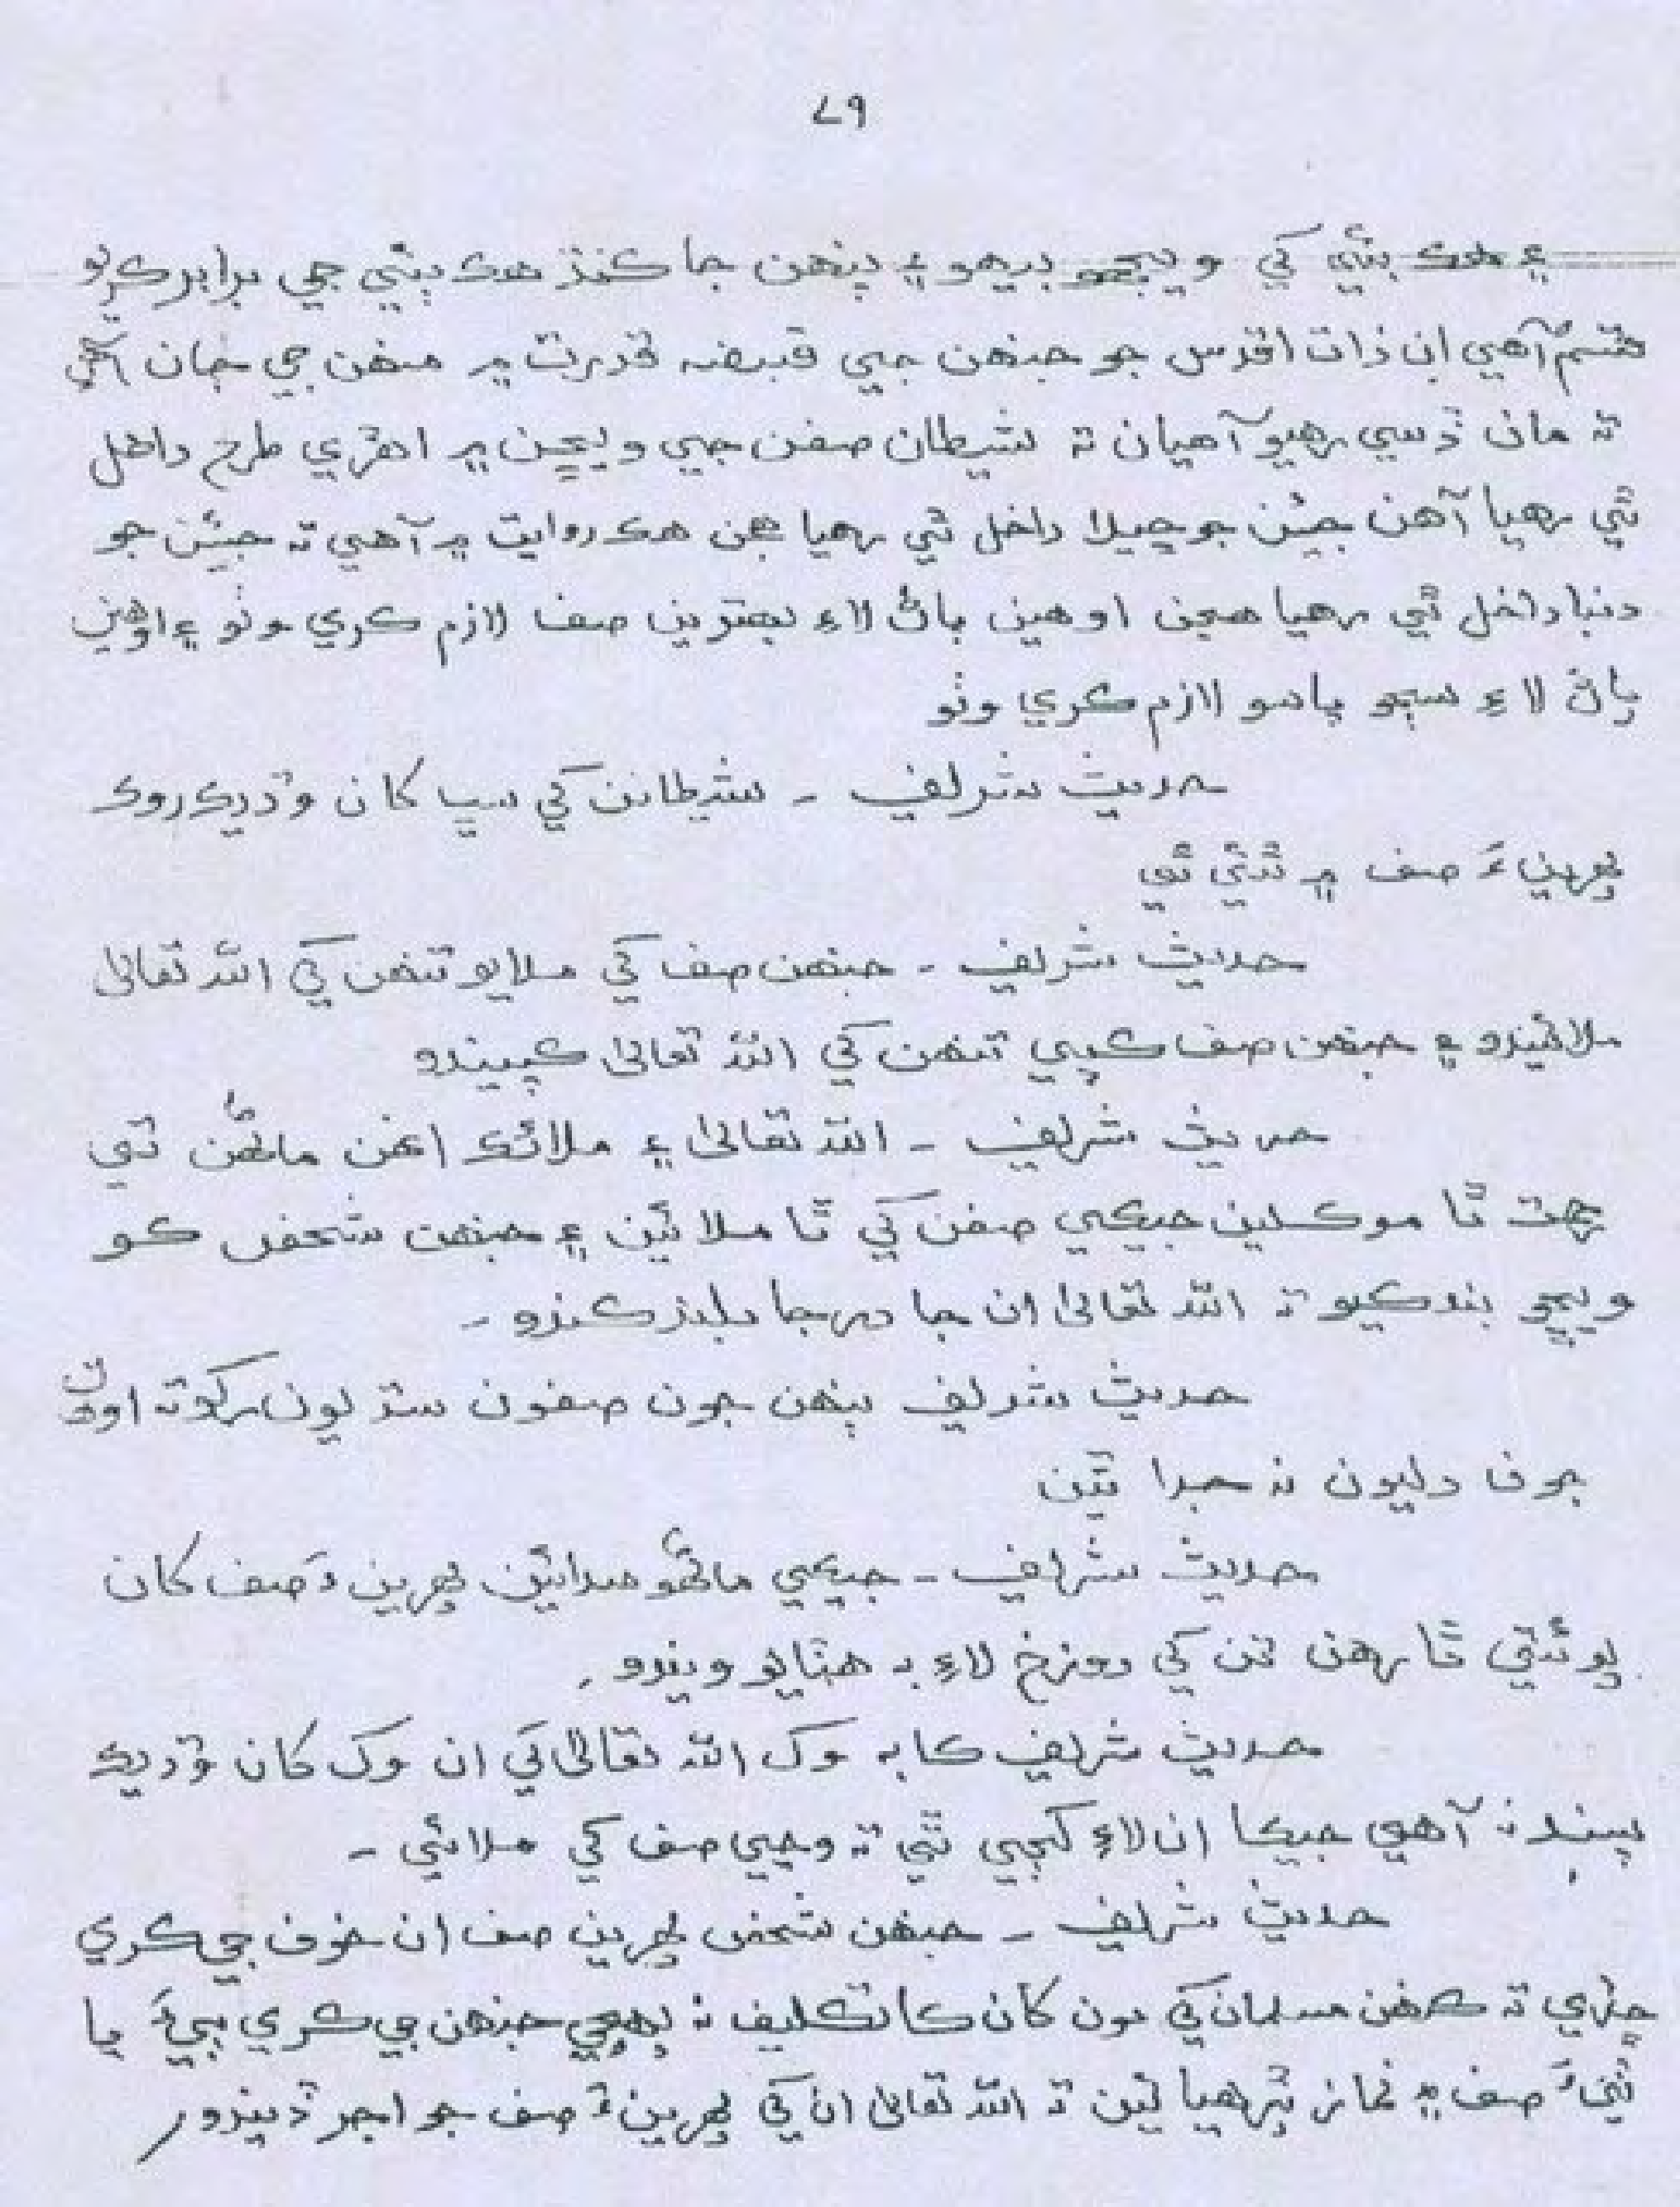 ۷۹
۽ هڪ ٻئي کي ويجهو بيهو ۽ پنهن جا ڪنڌ هڪ ٻئي جي برابر ڪريو
قسم آهي ان ذات اقدس جو جنهن جي قبضه قدرت ۾ منهن جي جان آهي
ته مان ڏسي رهيو آهيان ته شيطان صفن جي ويڇن ۾ اهڙي طرح داخل
ٿي رهيا آهن جيئن جو ڇيلا داخل ٿي رهيا هجن هڪ روايت ۾ آهي ته جيئن جو
دنبا داخل ٿي رهيا هجن اوهين پاڻ لاءِ بهترين صف لازم ڪري وٺو ۽ اوهين
پاڻ لاءِ سڄو پاسو لازم ڪري وٺو
حديث شريف - شيطانن کي سڀ کان وڌيڪ روڪ
پهرينءَ صف ۾ ٿئي ٿي
حديث شريف - جنهن صف کي ملايو تنهن کي الله تعاليٰ
ملائيندو ۽ جنهن صف ڪپي تنهن کي الله تعاليٰ ڪپيندو
حديث شريف - الله تعاليٰ ۽ ملائڪ انهن ماڻهن تي
رحمت ٿا موڪلين جيڪي صفن کي ٿا ملائين ۽ جنهن شخص ڪو
ويڇو بند ڪيو ته الله تعاليٰ ان جا درجا بلند ڪندو -
حديث شريف پنهن جون صفون سڌيون رکو ته اوهان
جون دليون نه جدا ٿين
حديث شريف - جيڪي ماڻهو سدائين پهرينءَ صف کان
پوئتي ٿا رهن تن کي دوزخ لاءِ به هٽايو ويندو.
حديث شريف ڪابه وک الله تعاليٰ کي ان وک کان وڌيڪ
پسند نه آهي جيڪا ان لاءِ کڄي ٿي ته وڃي صف کي ملائي -
حديث شريف - جنهن شخص پهرين صف ان خوف جي ڪري
ڇڏي ته ڪنهن مسلمان کي مون کان ڪا تڪليف نه پهچي جنهن جي ڪري ٻيءَ يا
ٽينءَ صف ۾ نماز پڙهيائين ته الله تعاليٰ ان کي پهرينءَ صف جو اجر ڏيندو